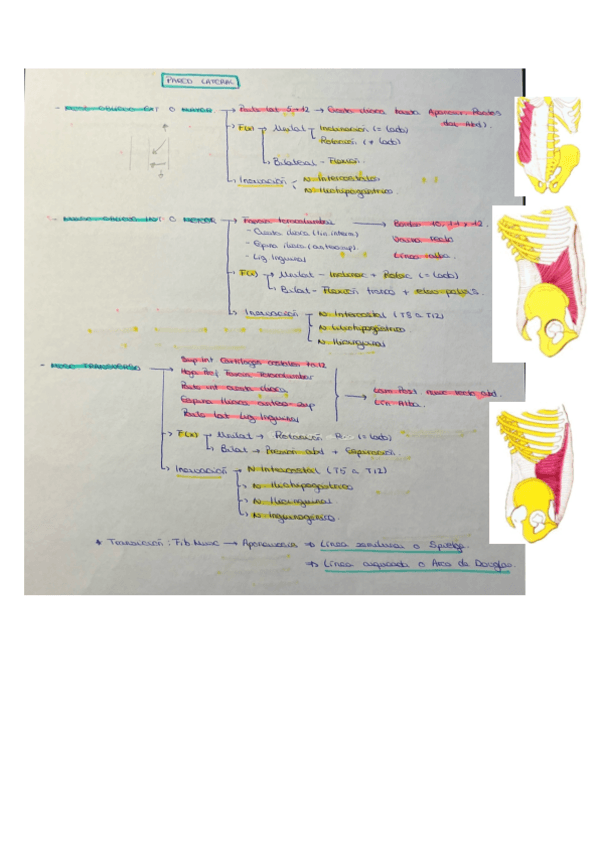 PARED LATERAL
- MUSC OBLICUO EXT O MAYOR → Parte lat 5-12 → Cresta iliaca hasta Aponeur. Rectos del Abd).
F(x) → Unilat - Inclinación (= lado)
Rotación (≠ lado)
Bilateral - Flexión.
Inervación : N. Intercostales
N. Iliohipogástrico.
- MUSC OBLICUO INT. O MENOR → Fascia toracolumbar → Bordes 10, 11 y 12.
- Cresta iliaca (lin interm)
- Espina iliaca (anterosup)
Línea alba.
- Lig Inguinal
F(x) → Unilat - Inclinac + Rotac (= lado)
Bilat - Flexión tronco + elev pelvis.
Inervación → N. Intercostal (T5 a T12)
N. Iliohipogástrico
N. Ilioinguinal
- MUSC TRANSVERSO → Sup. Int Cartílagos costales 7a.12
Hoja Prof Fascia Toracolumbar
Parte int cresta iliaca
Espina iliaca antero-sup
Parte lat Lig Inguinal
→ Lam. Post. musc recto abd.
Lín Alba.
F(x) → Unilat → Rotación (= lado)
Bilat → Presión abd + Espiración.
Inervación → N. Intercostal (T5 a T12)
N. Iliohipogástrico
N. Ilioinguinal
* Transición : Fib Musc → Aponeurosis ⇒ Línea semilunar o Spiegel
⇒ Línea arqueada o Arco de Douglas.